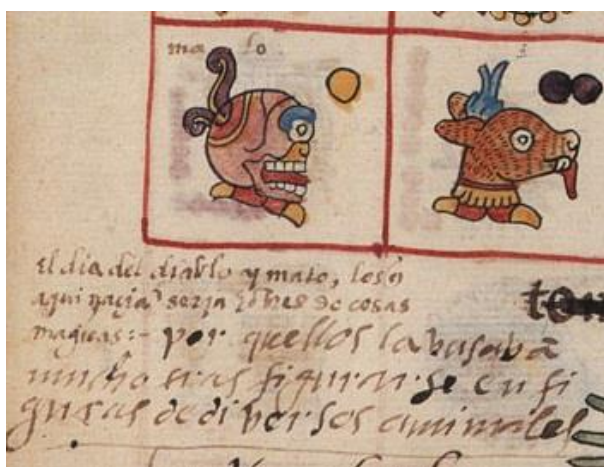 malo
el dia del diablo y malo, los q̃
aqui naçiã serian hõbres de cosas
magicas:- por quellos la vsabã
mucho tras figurarse en fi
guras de diversos animales